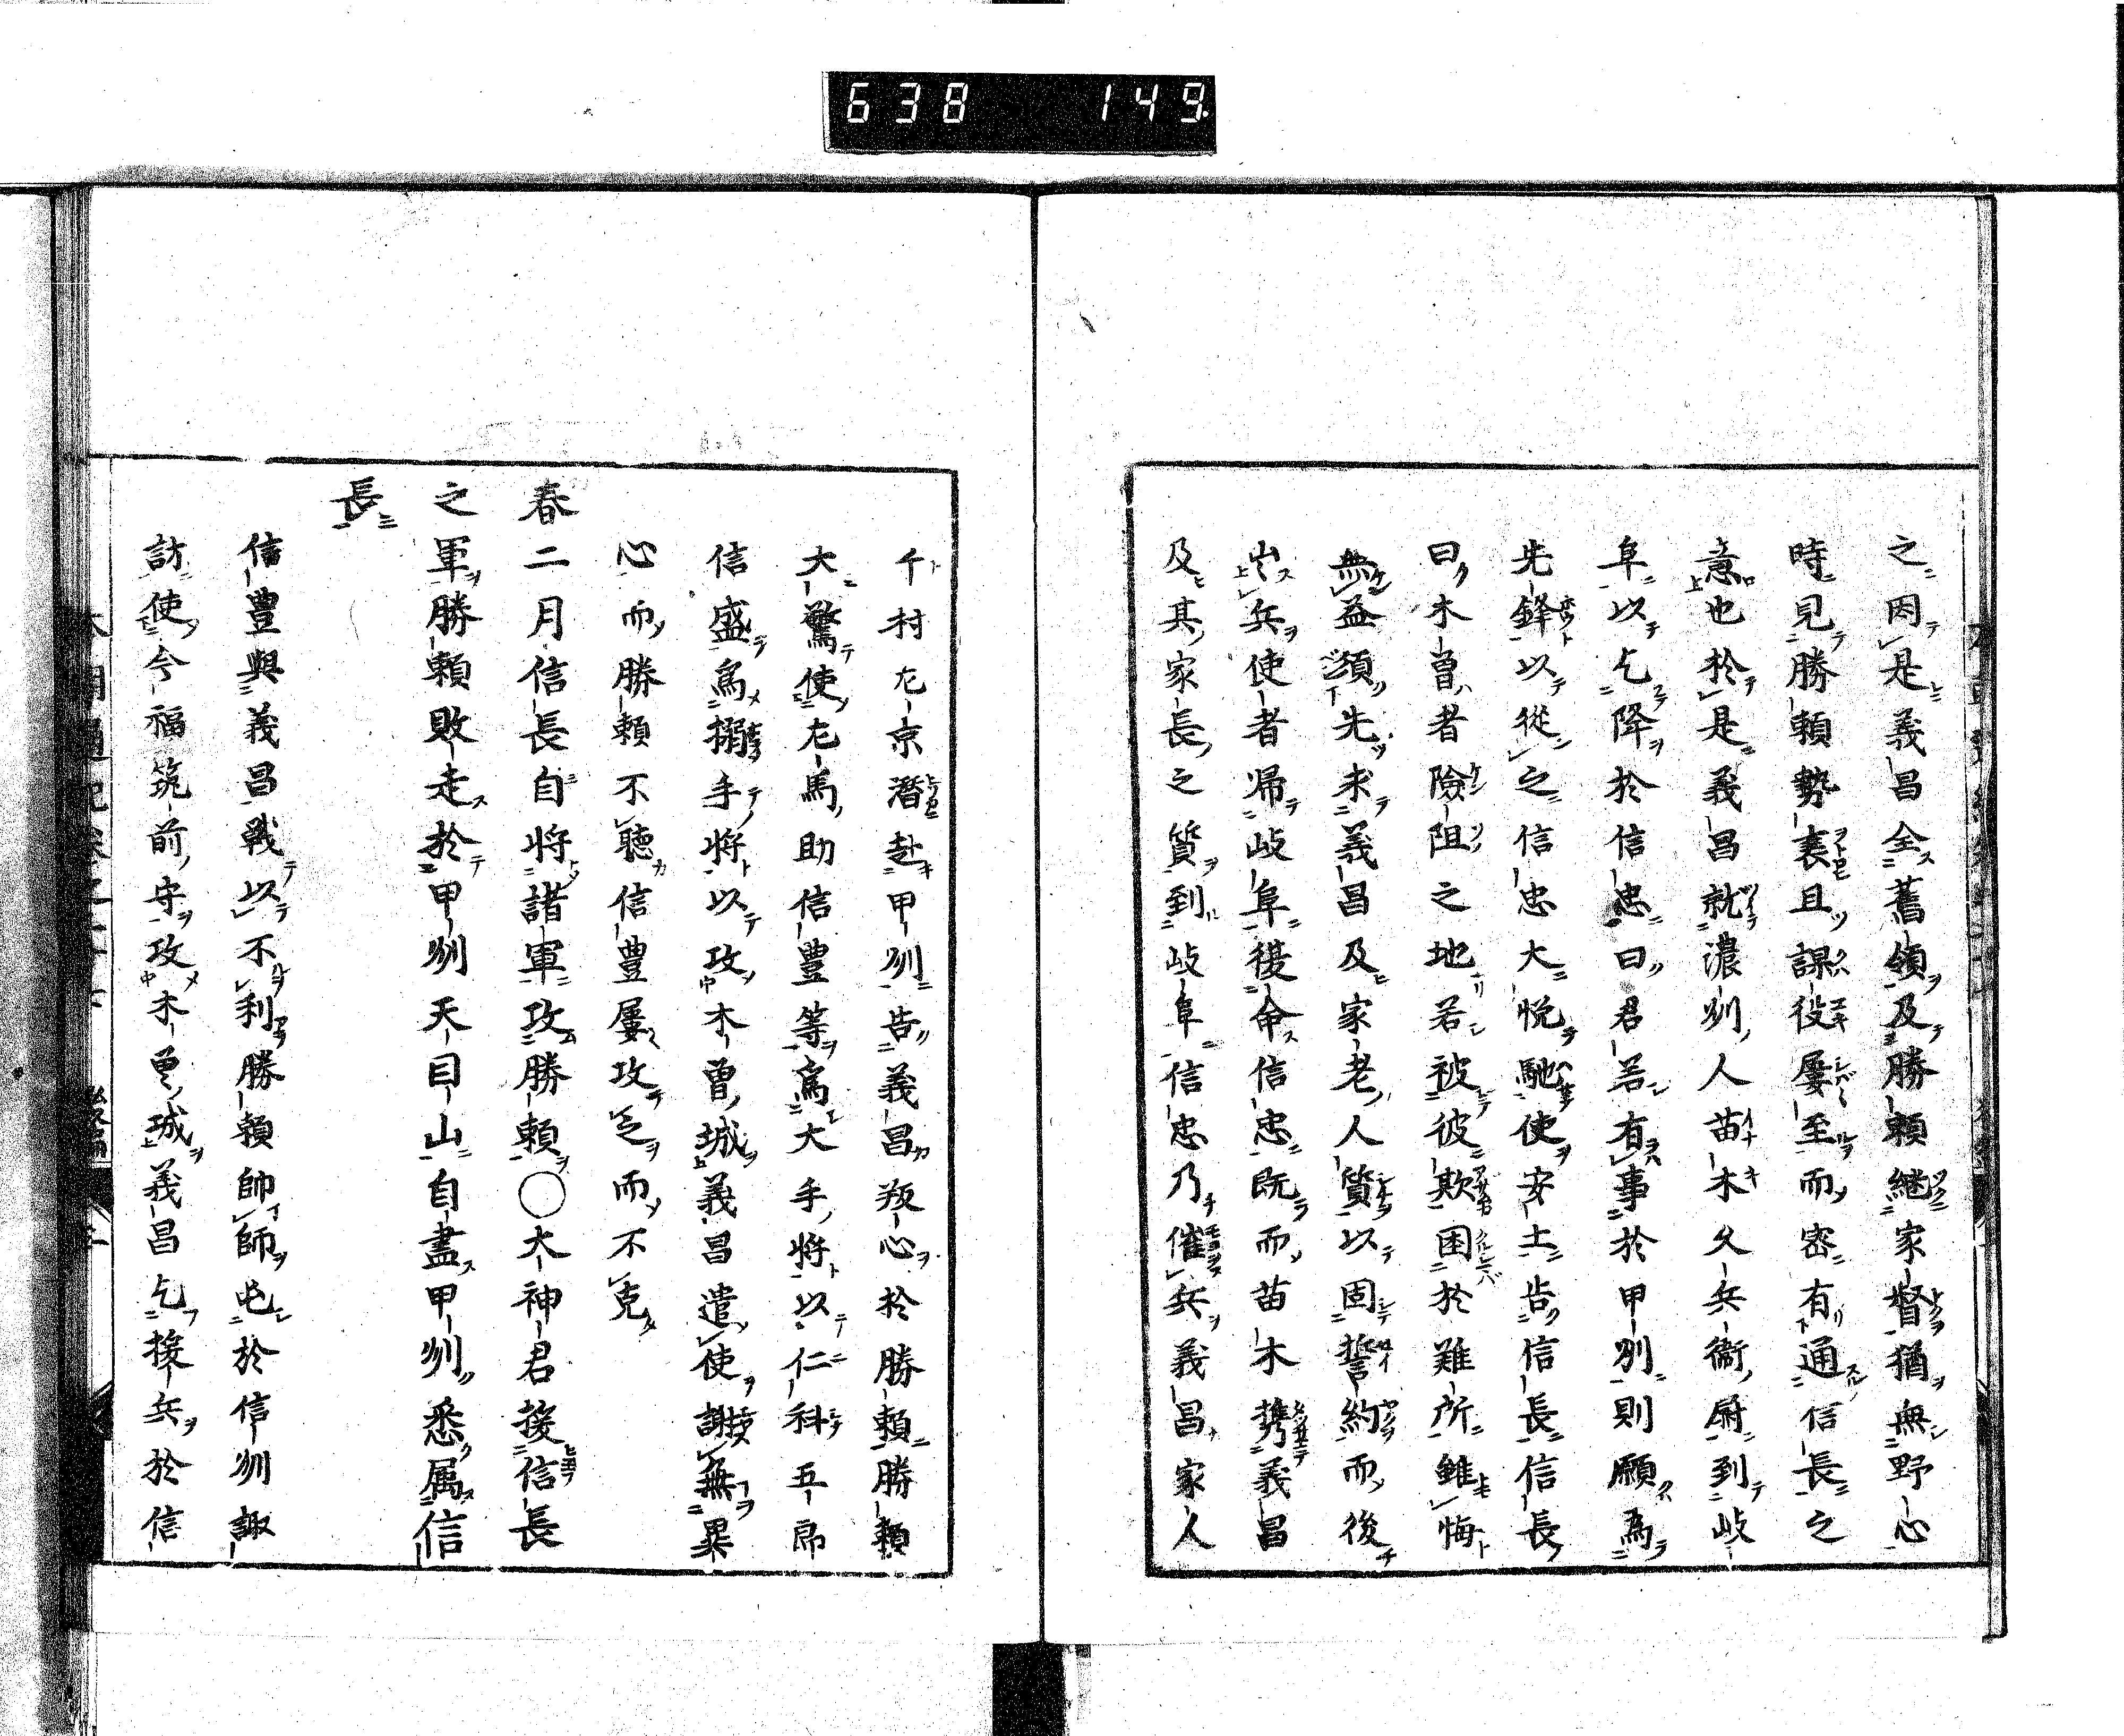 638 149
之因是義昌全舊領及勝頼継家督猶無野心
時見勝頼勢衰且課役屢至而密有通信長之
意也於是義昌就濃州人苗木久兵衛尉到岐
阜以乞降於信忠曰君若有事於甲州則願為
先鋒以從之信忠大悦馳使安土告信長信長
曰木曽者險阻之地若被彼欺困於難所雖悔
無益須先求義昌及家老人質以固誓約而後
出兵使者帰岐阜復命信忠既而苗木携義昌
及其家長之質到岐阜信忠乃催兵義昌家人
千村左京潜赴甲州告義昌叛心於勝頼勝頼
大驚使左馬助信豊等為大手將以仁科五郎
信盛為搦手將以攻木曽城義昌遣使謝無異
心而勝頼不聴信豊屢攻之而不克
春二月信長自將諸軍攻勝頼○大神君援信長
之軍勝頼敗走於甲州天目山自盡甲州悉属信
長
信豊與義昌戰以不利勝頼帥師屯於信州諏
訪使今福筑前守攻木曽城義昌乞援兵於信